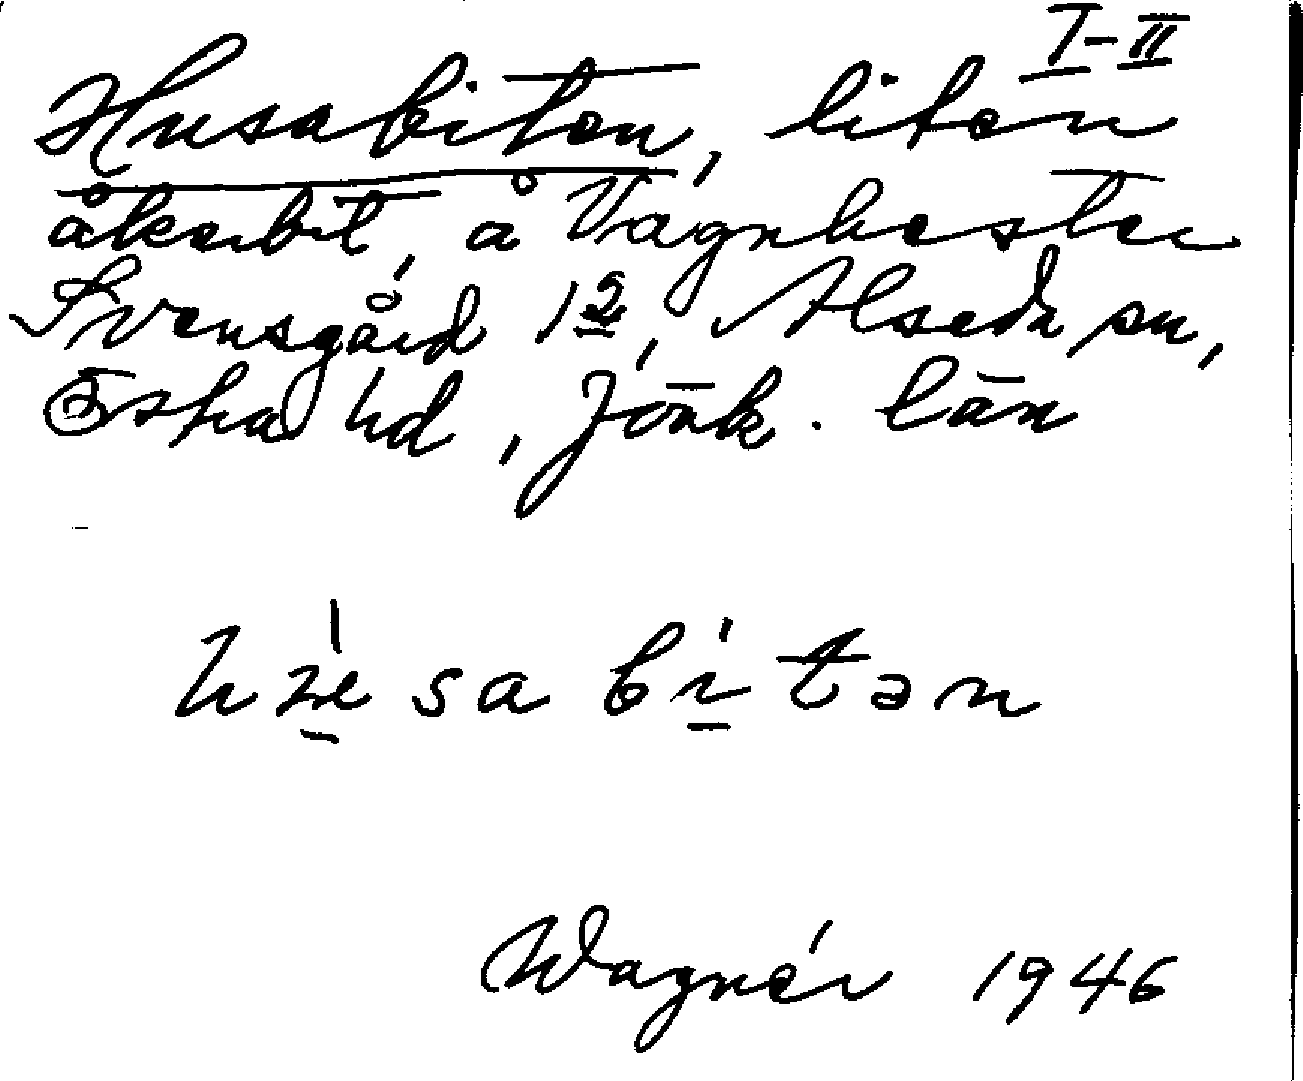 I-II
Husabiten, liten
åkerbit, å Vagnhester
Svensgård 12, Alseda sn,
Östra hd, Jönk. län
husabitən
Wagnér 1946